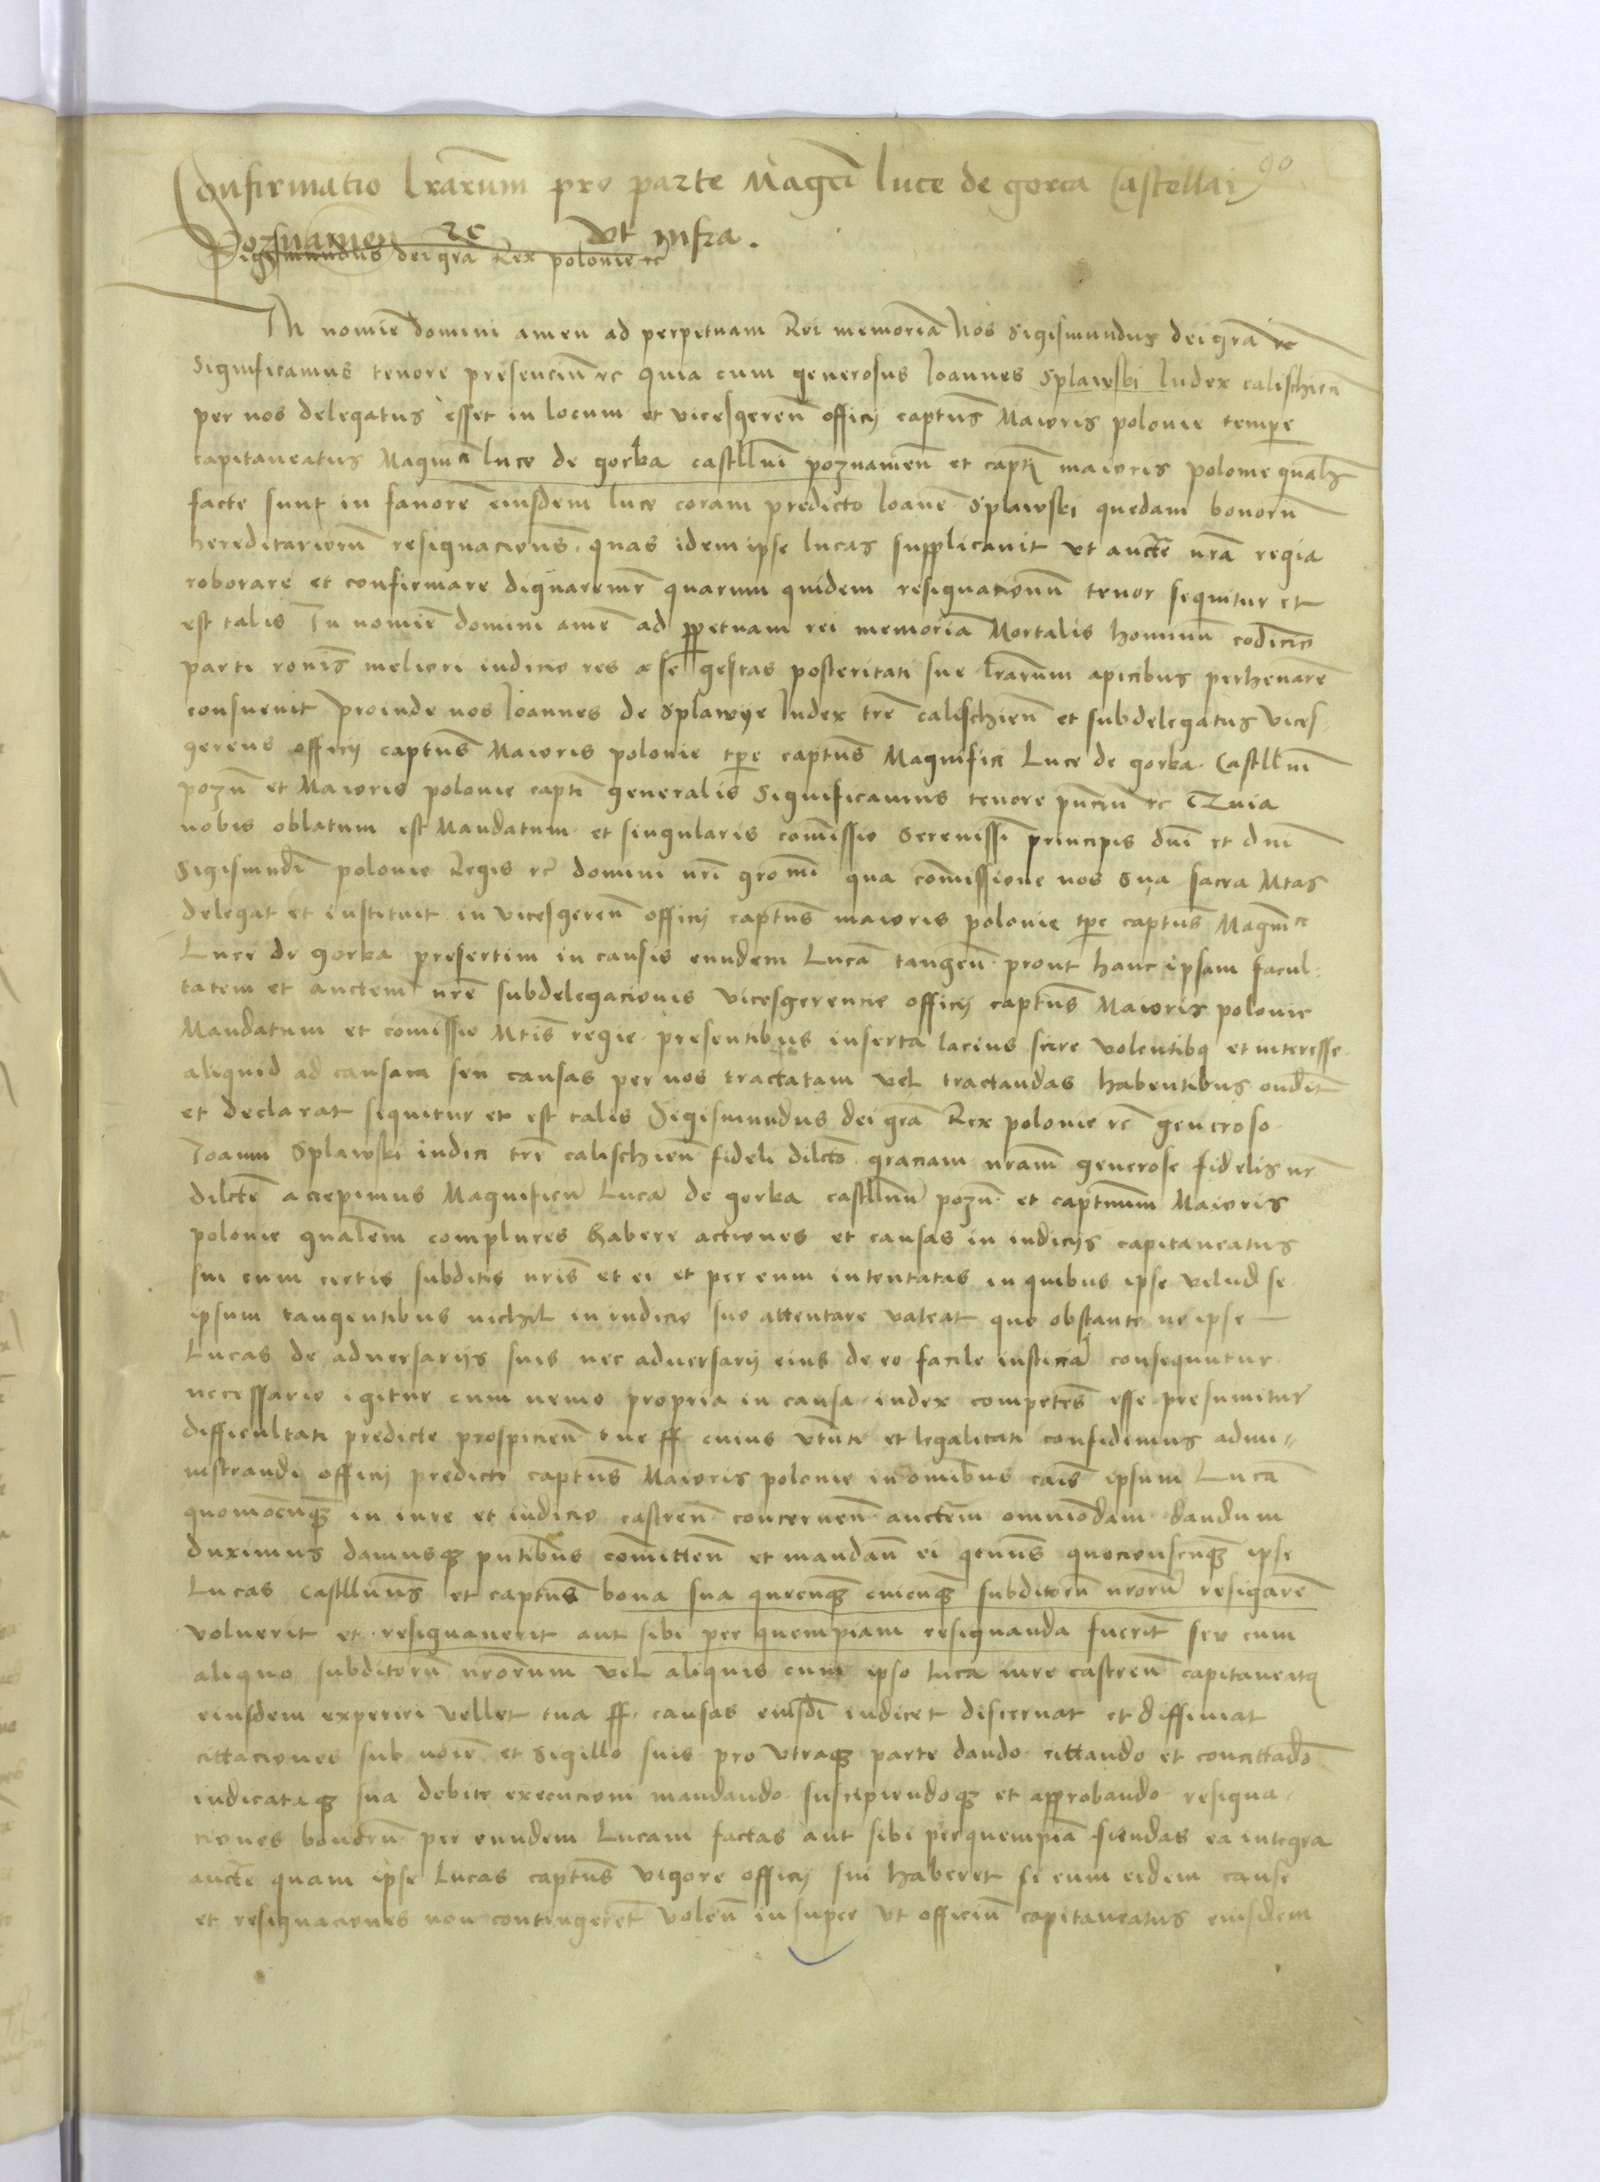 90
Confirmatio lrarum pro parte Magci luce de gorca Castellai
Poznamen rc vt infra.
Sigismundus dei gra Rex polonie rc
In nomie domini amen ad perpetuam Rei memoria Nos Sigismundus dei gra rc
Significamus tenore presenciu rc Quia cum generosus Ioannes Splawski Iudex calischien
per nos delegatus esset in locum et vicesgeren officij captus Maioris polonie tempe
capitaneatus Magnici luce de gorka castllni poznamen et capti maioris polonie gnalis
facte sunt in fauore eiusdem luce coram predicto Ioane Splawski quedam bonoru
hereditarioru resignacions quas idem ipse lucas supplicauit vt aucte nra regia
roborare et confirmare dignaremr quarum quidem resignationu tenor sequitur et
est talis In nomie domini ame ad ppetuam rei memoria Mortalis hominu codicio
parti ronis meliori iudicio res a se gestas posteritati sue lrarum apicibus perhenare
consueuit Proinde nos Ioannes de Splawye Iudex tre calischien et subdelegatus vices
gerens officij captus Maioris polonie tpe captus Magnifici Luce de gorka Castllni
pozn et Maioris polonie capti generalis Significamus tenore pnciu rc Quia
nobis oblatum est Mandatum et singularis comissio Serenissi principis dni et dni
Sigismudi polonie Regis rc domini nri gromi qua comissione nos Sua sacra Mtas
delegat et instituit in vicesgeren officij captus maioris polonie tpe captus Magnici
Luce de gorka presertim in causis eundem Luca tangen prout hanc ipsam facul
tatem et auctem nre subdelegacionis vicesgerencie officij captus Maioris polonie
Mandatum et comissio Mtis regie presentibus inserta lacius scire volentibus et interesse
aliquid ad causam seu causas per nos tractatam vel tractandas habentibus ondit
et declarat sequitur et est talis Sigismundus dei gra Rex polonie rc generoso
Ioanni Splawski iudici tre calischien fideli dilcto graciam nram generose fidelis nr
dilcte accepimus Magnificu Luca de gorka castllnu pozn et captnum Maioris
polonie gnalem complures habere actiones et causas in iudicijs capitaneatus
sui cum certis subditis nris et ei et per eum intentatas in quibus ipse velud se
ipsum tangentibus nichil in iudicio suo attentare valeat quo obstante ne ipse
Lucas de aduersarijs suis nec aduersarij eius de eo facile iusticia consequntur
necessario igitur cum nemo propria in causa iudex competes esse presumitur
difficultati predicte prospicien tue ff cuius vtuti et legalitati confidimus admi
nistrandi officij predicti captus Maioris polonie in omibus cais ipsum Luca
quomocunq in iure et iudicio castren concernen auctem omnioda dandum
duximus damusq pntibus comitten et mandan ei qtenus quocienscunq ipse
Lucas castllnus et captus bona sua quecunq cuicunq subditoru nroru resigare
voluerit et resignauerit aut sibi per quempiam resignanda fuerit seu cum
aliquo subditoru nrorum vel aliquis cum ipso luca iure castren capitaneatus
eiusdem experiri vellet tua ff causas eiusdi iudicet discernat et diffiniat
cittaciones sub noie et sigillo suis pro vtraq parte dando cittando et concittado
iudicataq sua debite execucioni mandando suscipiendoq et approbando resigna
ciones bonoru per eundem Lucam factas aut sibi perquempia fiendas ea integra
aucte quam ipse Lucas captus vigore officij sui haberet si eum eidem cause
et resignaciones non contingeret volen insuper vt officiu capitaneatus eiusdem